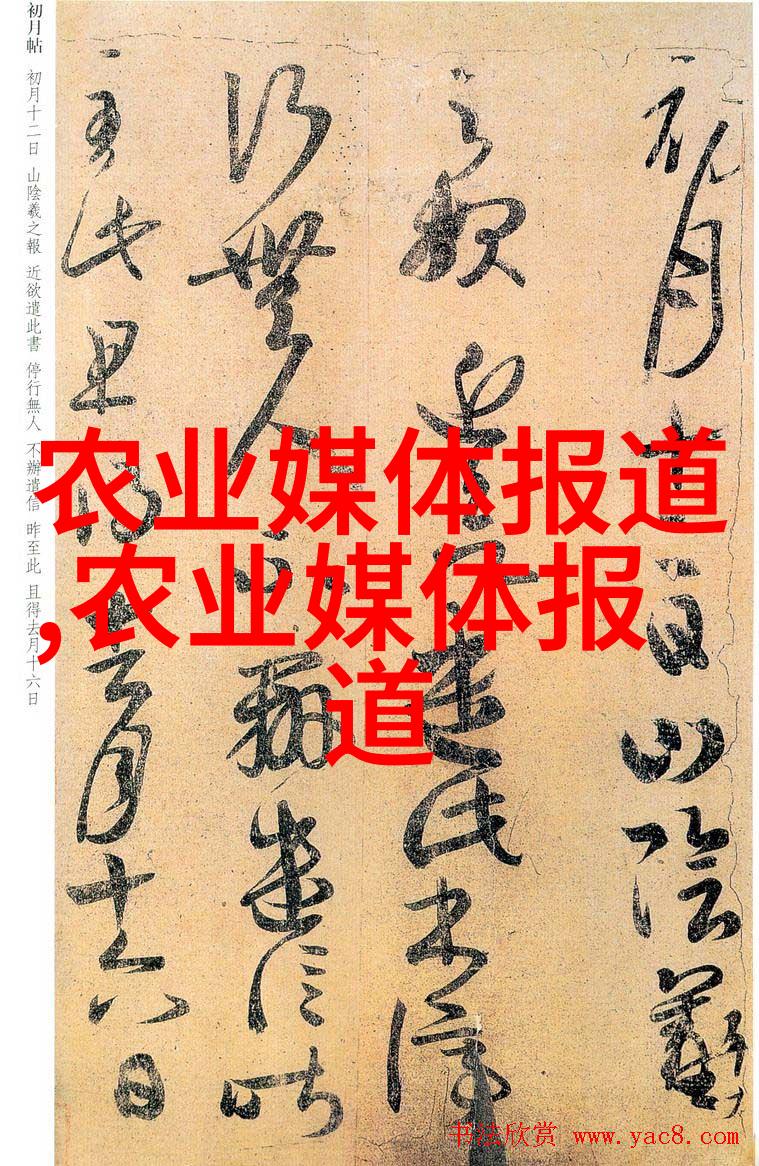 初月十二日山陰羲
之報近欲遣此書停
行無人不辦遣信昨
至此且得去月十六日
初月帖 初月十二日 山陰羲之報 近欲遣此書 停行無人 不辦遣信 昨至此 且得去月十六日
农业媒体报道
,农业媒体报
道
书法欣赏 www.yac8.com